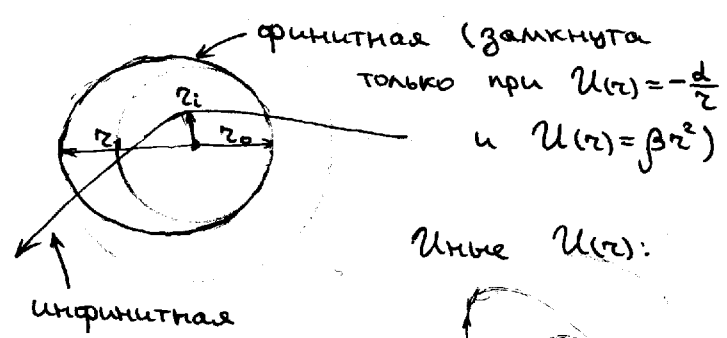 финитная (замкнута
только при U(r) = -α/r
и U(r) = βr²)
r_i
r_1
r_0
Иные U(r):
инфинитная